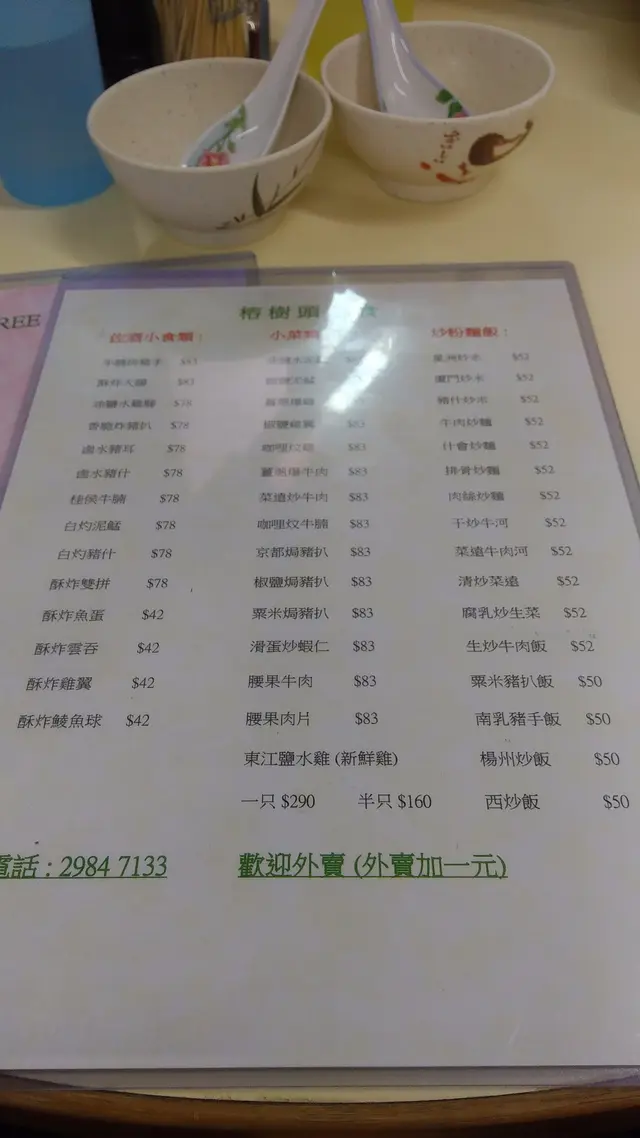 REE
榕樹頭
佐酒小食類：
滷水豬耳 $78
滷水豬什 $78
桂侯牛腩 $78
白灼泥鯭 $78
白灼豬什 $78
酥炸雙拼 $78
酥炸魚蛋 $42
酥炸雲吞 $42
酥炸雞翼 $42
酥炸鯪魚球 $42
小菜類
椒鹽雞翼 $83
咖哩炆雞 $83
薑葱爆牛肉 $83
菜遠炒牛肉 $83
咖哩炆牛腩 $83
京都焗豬扒 $83
椒鹽焗豬扒 $83
粟米焗豬扒 $83
滑蛋炒蝦仁 $83
腰果牛肉 $83
腰果肉片 $83
東江鹽水雞 (新鮮雞)
一只 $290 半只 $160
炒粉麵飯：
星洲炒米 $52
廈門炒米 $52
豬什炒米 $52
牛肉炒麵 $52
什會炒麵 $52
排骨炒麵 $52
肉絲炒麵 $52
干炒牛河 $52
菜遠牛肉河 $52
清炒菜遠 $52
腐乳炒生菜 $52
生炒牛肉飯 $52
粟米豬扒飯 $50
南乳豬手飯 $50
楊州炒飯 $50
西炒飯 $50
電話 : 2984 7133
歡迎外賣 (外賣加一元)